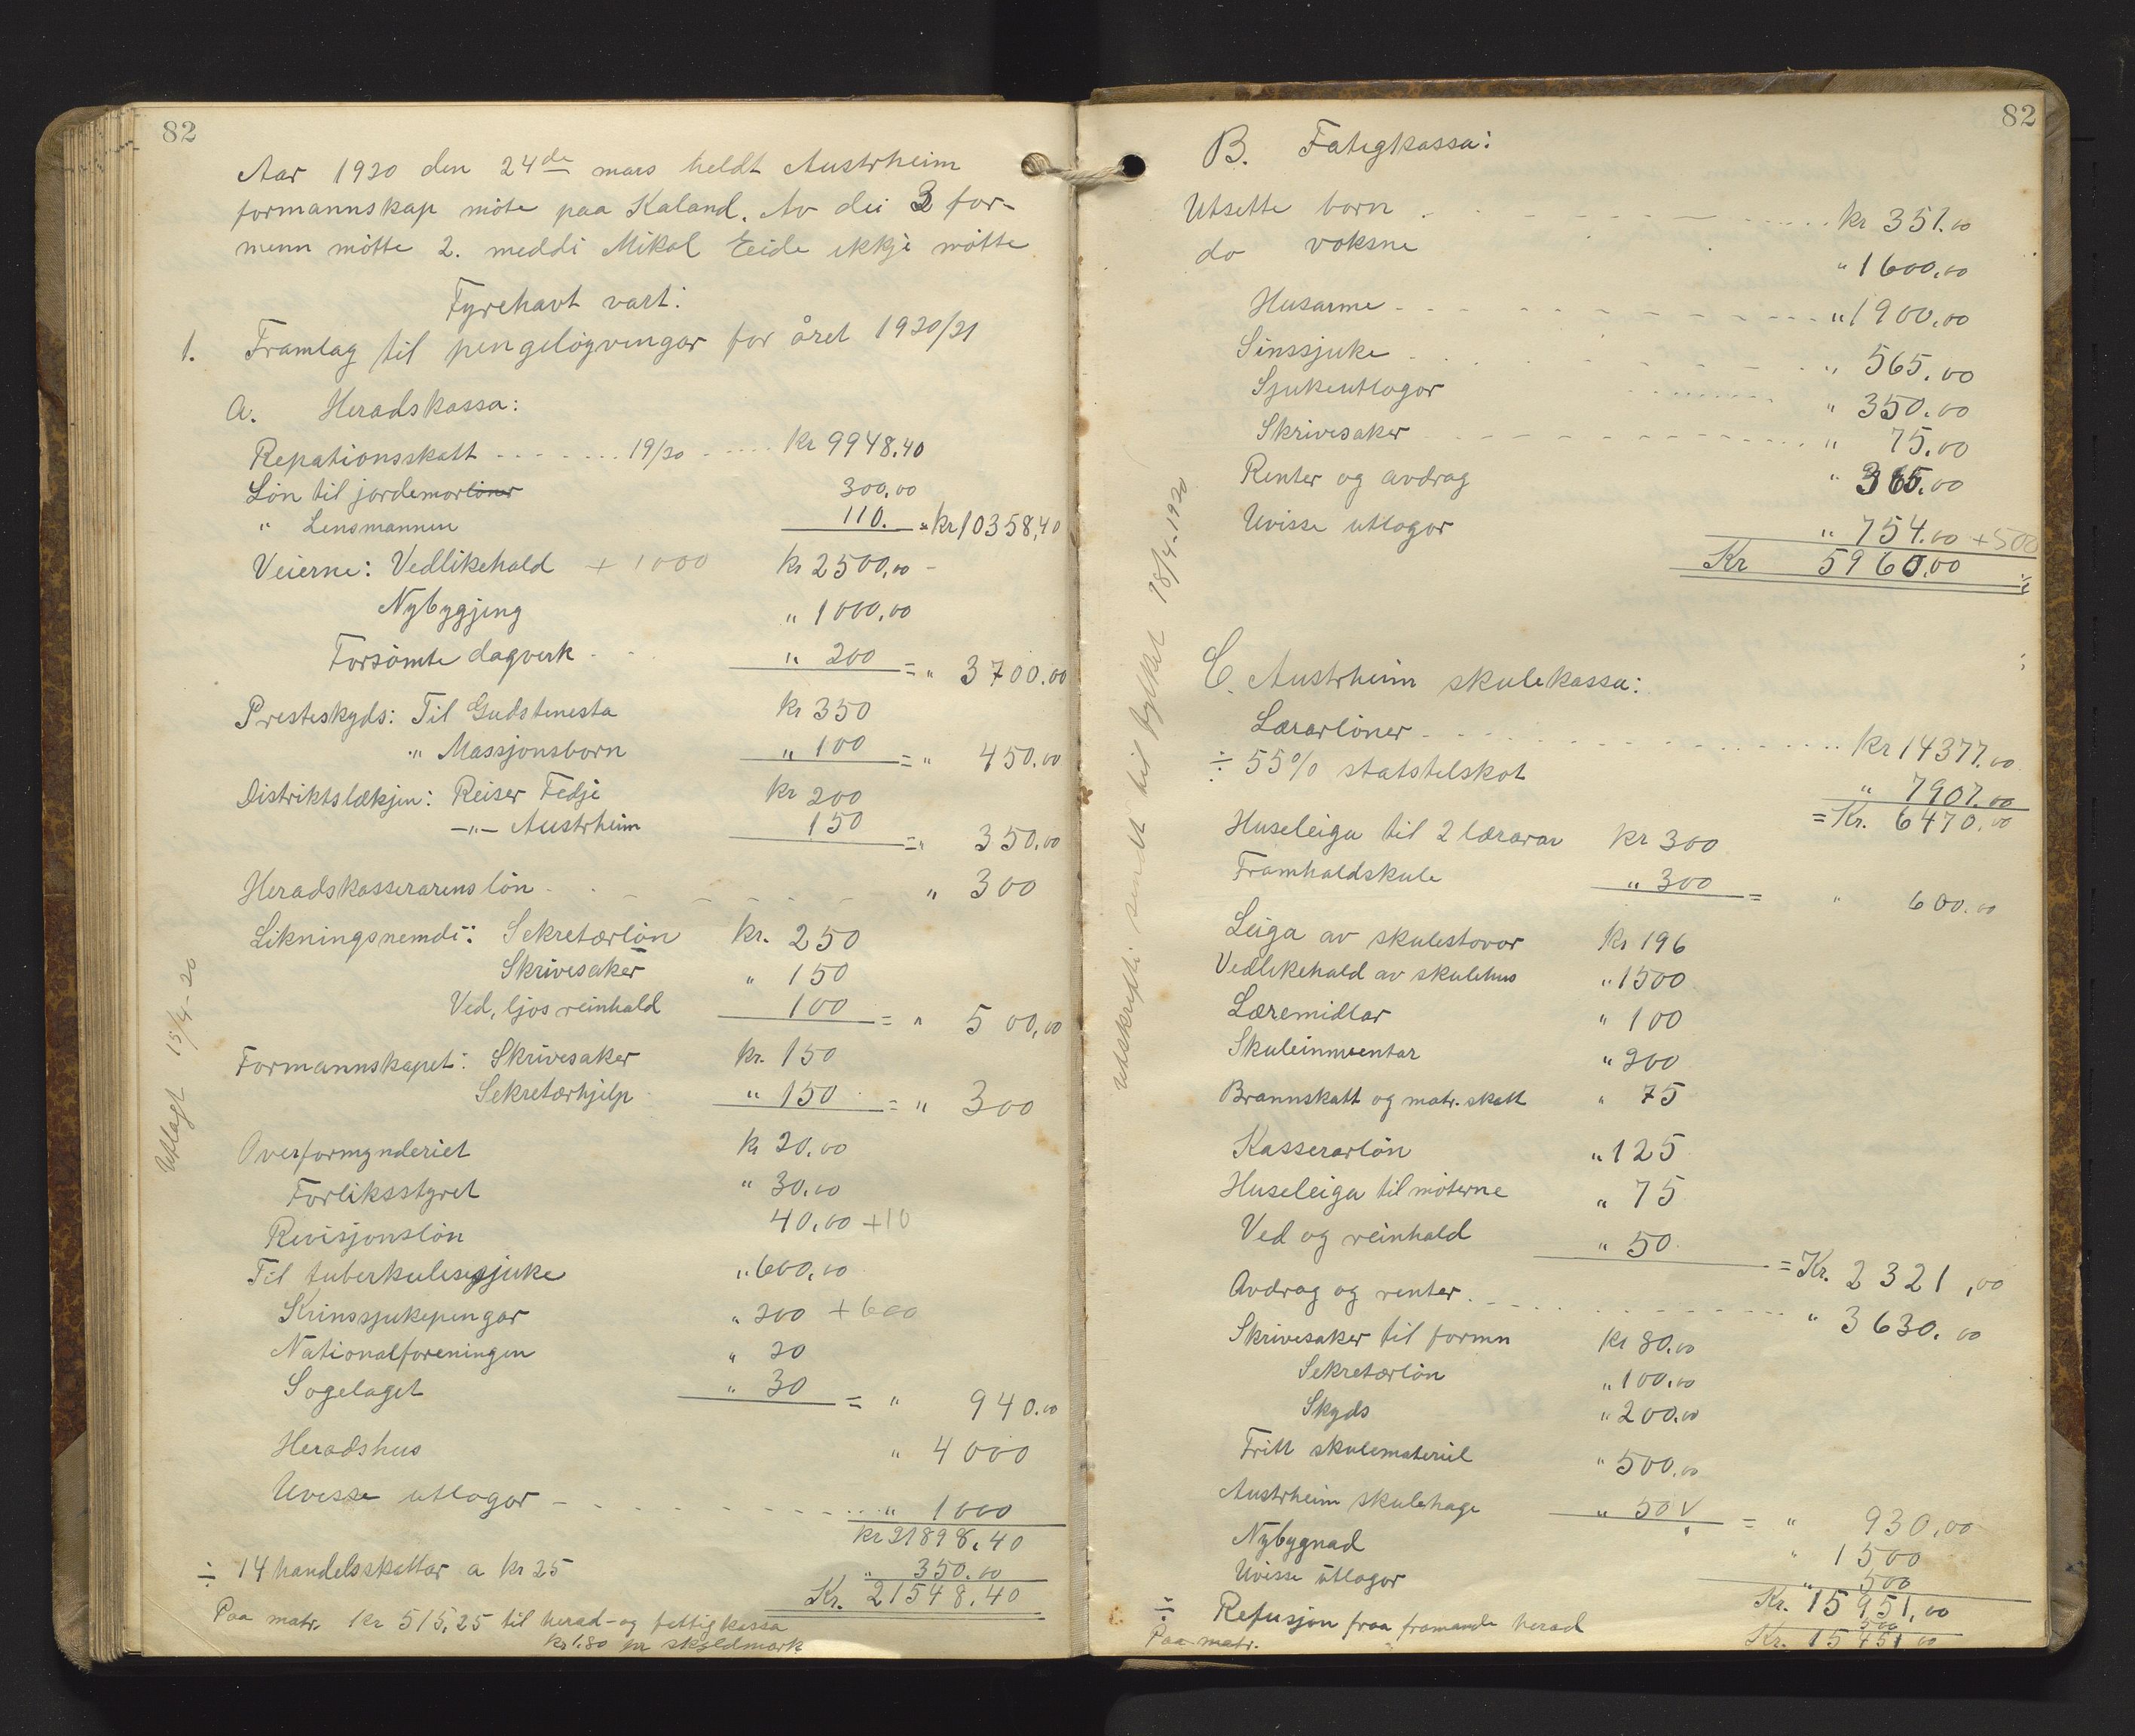 82
Aar 1920 den 24de mars heldt Austrheim
formannskap möte paa Kaland. Av dei 3 for-
menn mötte 2. meddi Mikal Eeide ikkje mötte
Fyrehavt vart:
1. Framlag til pengelögvingar for året 1920/21
A. Heradskassa:
Repationsskatt - - - - ....19/20 - .... Kr 9948.40
Lön til jordemorlöner 300,00
" Lensmannen 110. = " kr 10358,40
Veierne: Vedlikehald + 1000 kr 2500,00 -
Nybyggjing " 1000,00
Forsömte dagverk - - " 200 = " 3700.00
Presteskyds: Til Gudstenesta kr 350
" Massjonsborn " 100 = " 450.00
Distriktslækjen: Reiser Fedje kr 200
-"- Austrheim 150 = " 350.00
Heradskasserarens lön - - - - - " 300
Likningsnemdi: Sekretærlön kr. 250
Skrivesaker " 150
Ved, ljos reinhald 100 = " 500,00
Formannskapet: Skrivesaker kr. 150
Sekretærhjelp " 150 = " 300
Overformynderiet kr 20.00
Forliksstyret " 30.00
Revisjonslön 40.00 +10
Til tuberkulesesjuke " 600,00
Krinssjukepengar " 200 + 600
Nationalforeningen " 20
Sogelaget " 30 = " 940.00
Heradshus " 4000
Uvisse utlogor - - - - - - " 1000
kr 21898.40
÷ 14 handelsskattar a kr 25 " 350.00
Kr. 21548.40
Paa matr. kr 515,25 til herad- og fattigkassa
kr 1.80 pr skyldmark
Utlagt 15/4-20
82
B. Fatigkassa:
Utsette born . - - - - - .... kr 351.00
do voksne " 1600.00
Husarme - - - - - - " 1900.00
Sinssjuke - - - - " 565.00
Sjukeutlogor ........ " 350.00
Skrivesaker - - - - - - " 75.00
Renter og avdrag " 365.00
Uvisse utlogor " 754.00 +500
Kr 5960.00
Utskrift sendt til fylket 18/4-1920
C. Austrheim skulekassa:
Lærarlöner - - - - - .... kr 14377.00
÷ 55% statstilskot " 7907.00
= Kr. 6470.00
Huseleiga til 2 lærarar kr 300
Framhaldskule " 300 = " 600.00
Leiga av skulestovor kr 196
Vedlikehald av skulehus " 1500
Læremidlar " 100
Skuleinnventar " 200
Brannskatt og matr. skatt " 75
Kasserarlön " 125
Huseleiga til möterne " 75
Ved og reinhald " 50 = Kr. 2321,00
Avdrag og renter - - - - - " 3630.00
Skrivesaker til formn kr 80.00
Sekretærlön " 100.00
Skyds " 200.00
Fritt skulemateriel " 500.00
Austrheim skulehage " 50 = " 930,00
Nybygnad " 1500
Uvisse utlogor " 500
Kr. 15951,00
÷ Refusjon fraa framande herad 500
Paa matr. Kr. 15451 00